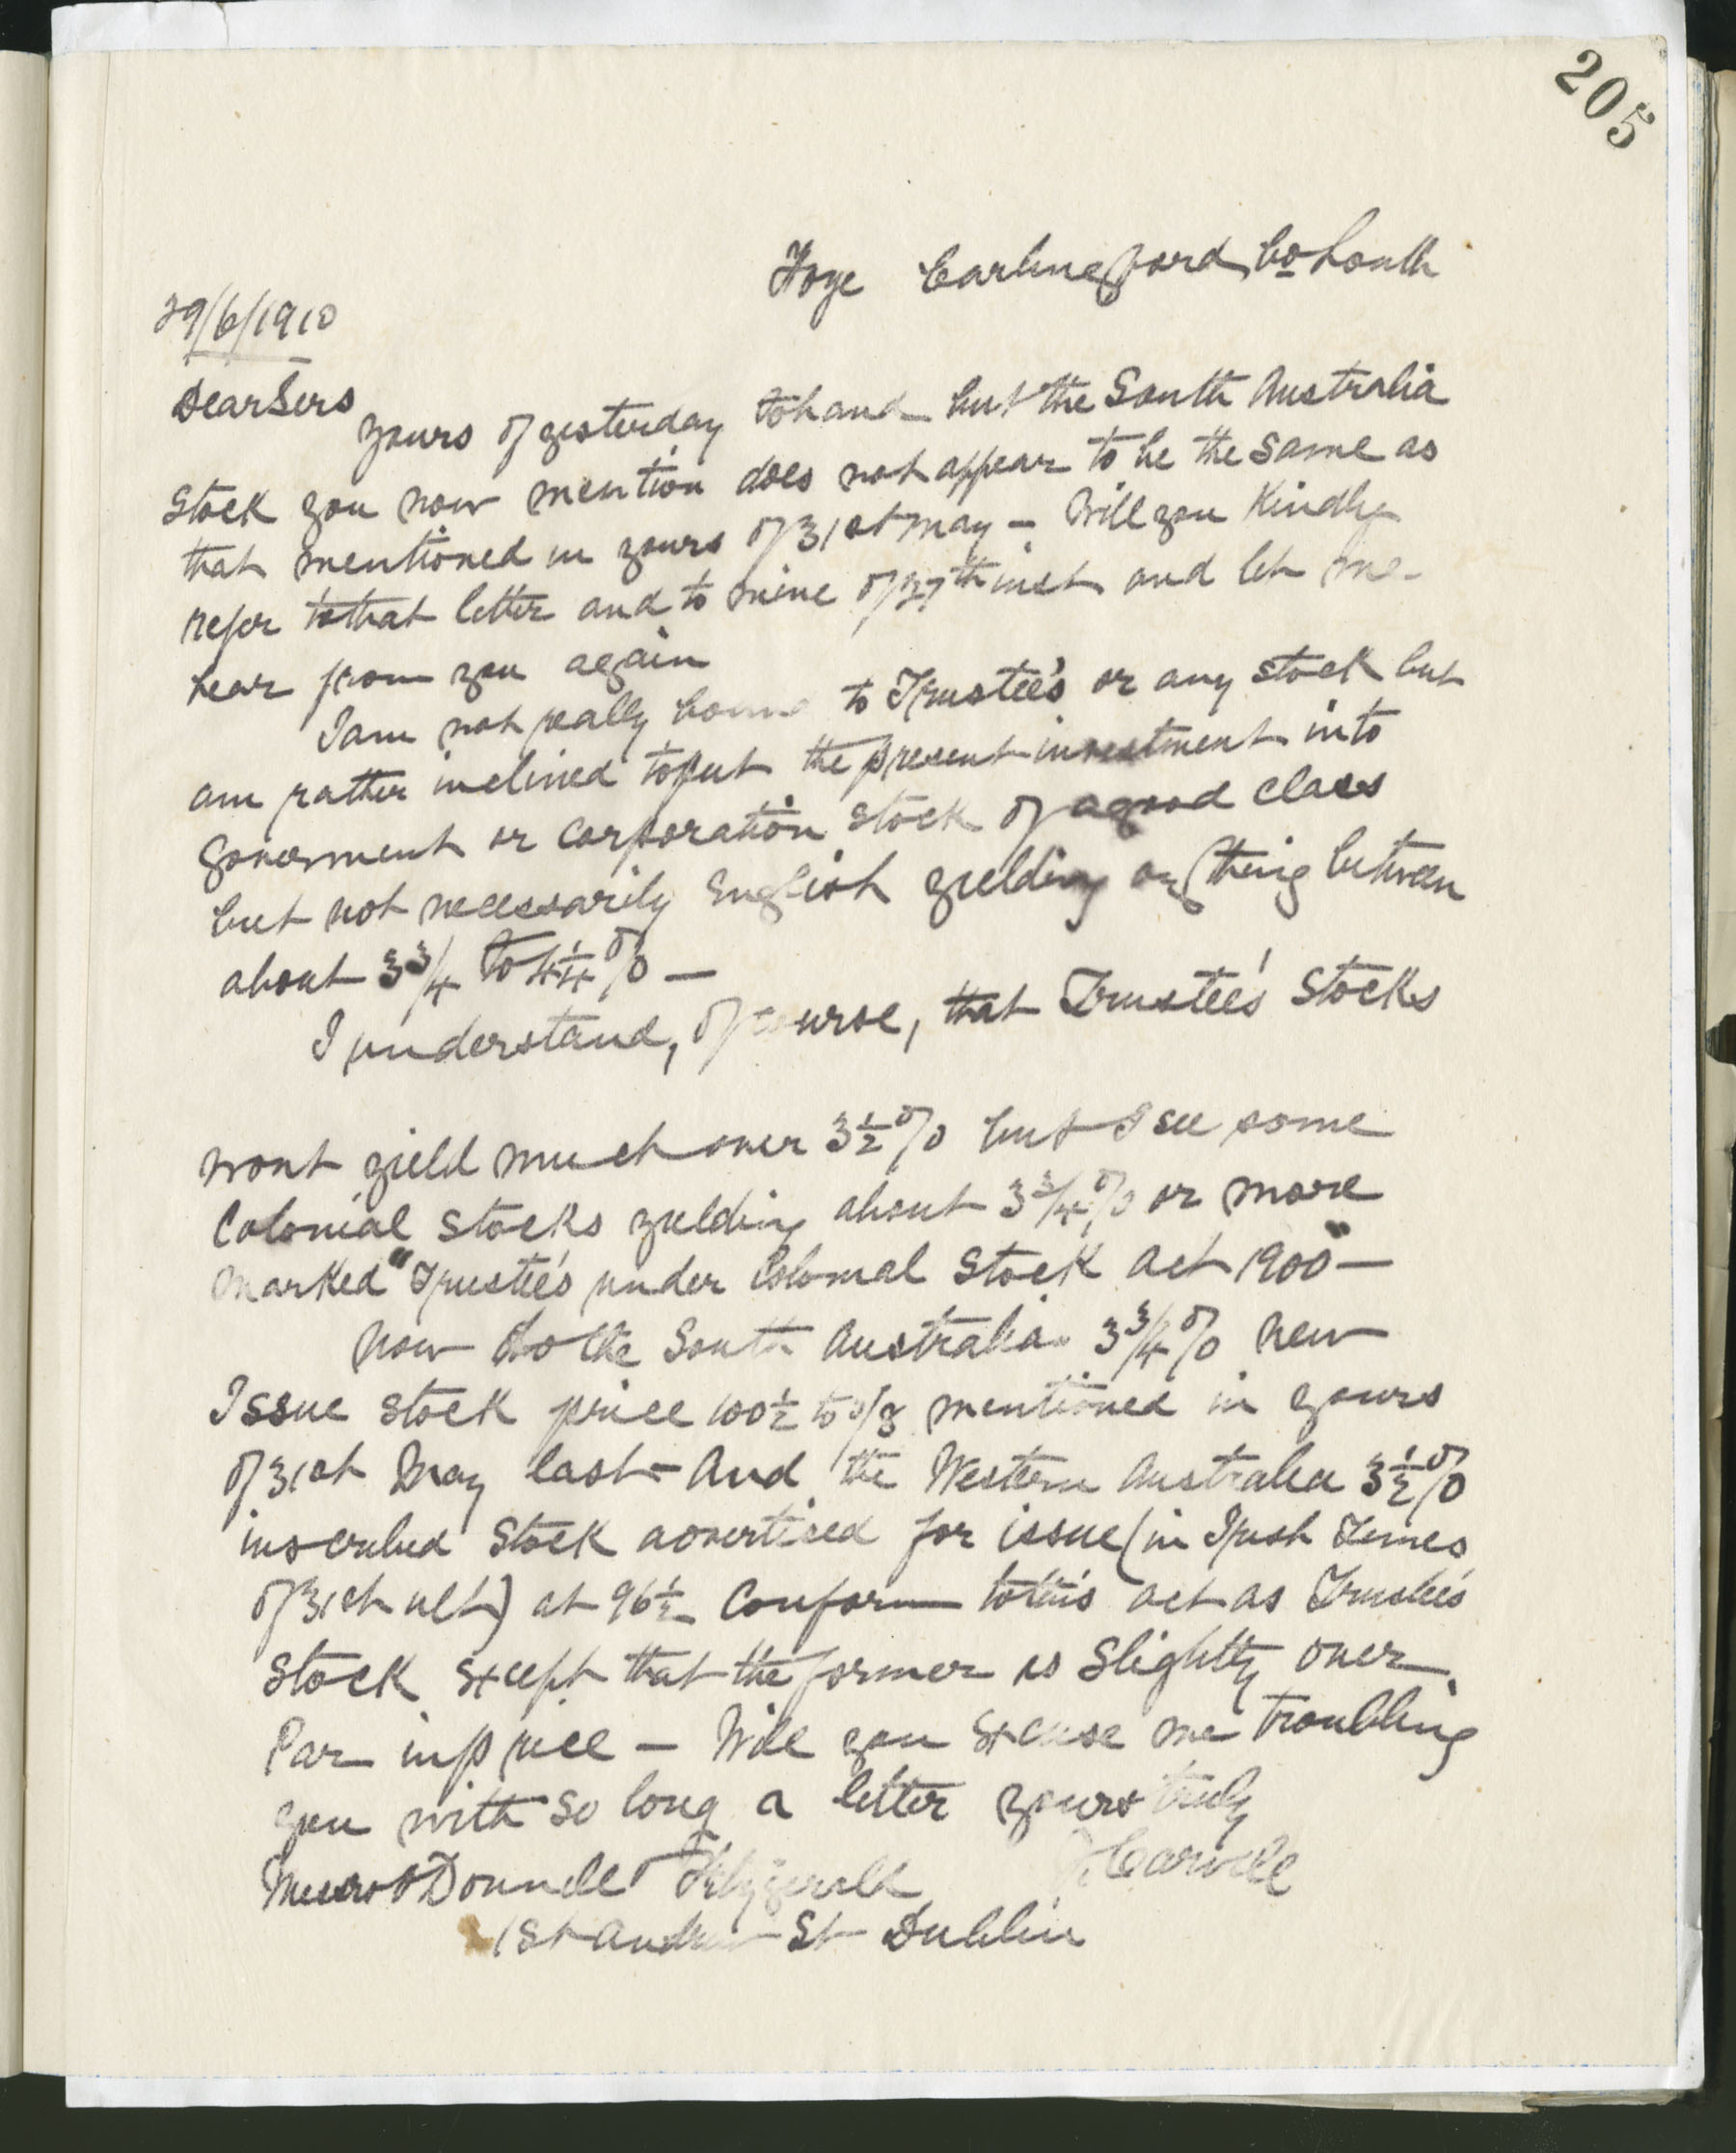 205
Foye Carlingford Co Louth
29/6/1910
Dear Sirs
yours of yesterday to hand but the South Australia
Stock you now mention does not appear to be the same as
that mentioned in yours of 31st May - Will you Kindly
refer to that letter and to mine of 27th inst and let me
hear from you again
I am not really bound to Trustee's or any stock but
am rather inclined to put the present investment into
Goverment or Corporation stock of a good class
but not necessarily English yielding anything between
about 3 3/4 to 4 1/4 % -
I understand, of course, that Trustee's Stocks
wont yield much over 3 1/2 % but I see some
Colonial Stocks yielding about 3 3/4 % or more
marked "Trustee's under Colonial Stock Act 1900" -
Now do the South Australia 3 3/4 % New
Issue Stock price 100 1/2 to 5/8 mentioned in yours
of 31st May last - And the Western Australia 3 1/2 %
inscribed Stock advertised for issue (in Irish Times
of 31st ult) at 96 1/2 Conform to this act as Trustee's
Stock Except that the former is Slightly over
Par in price - Will you Excuse me troubling
you with so long a letter yours truly
Messrs O'Donnell & Fitzgerald J Carvill
1 St Andrew St Dublin